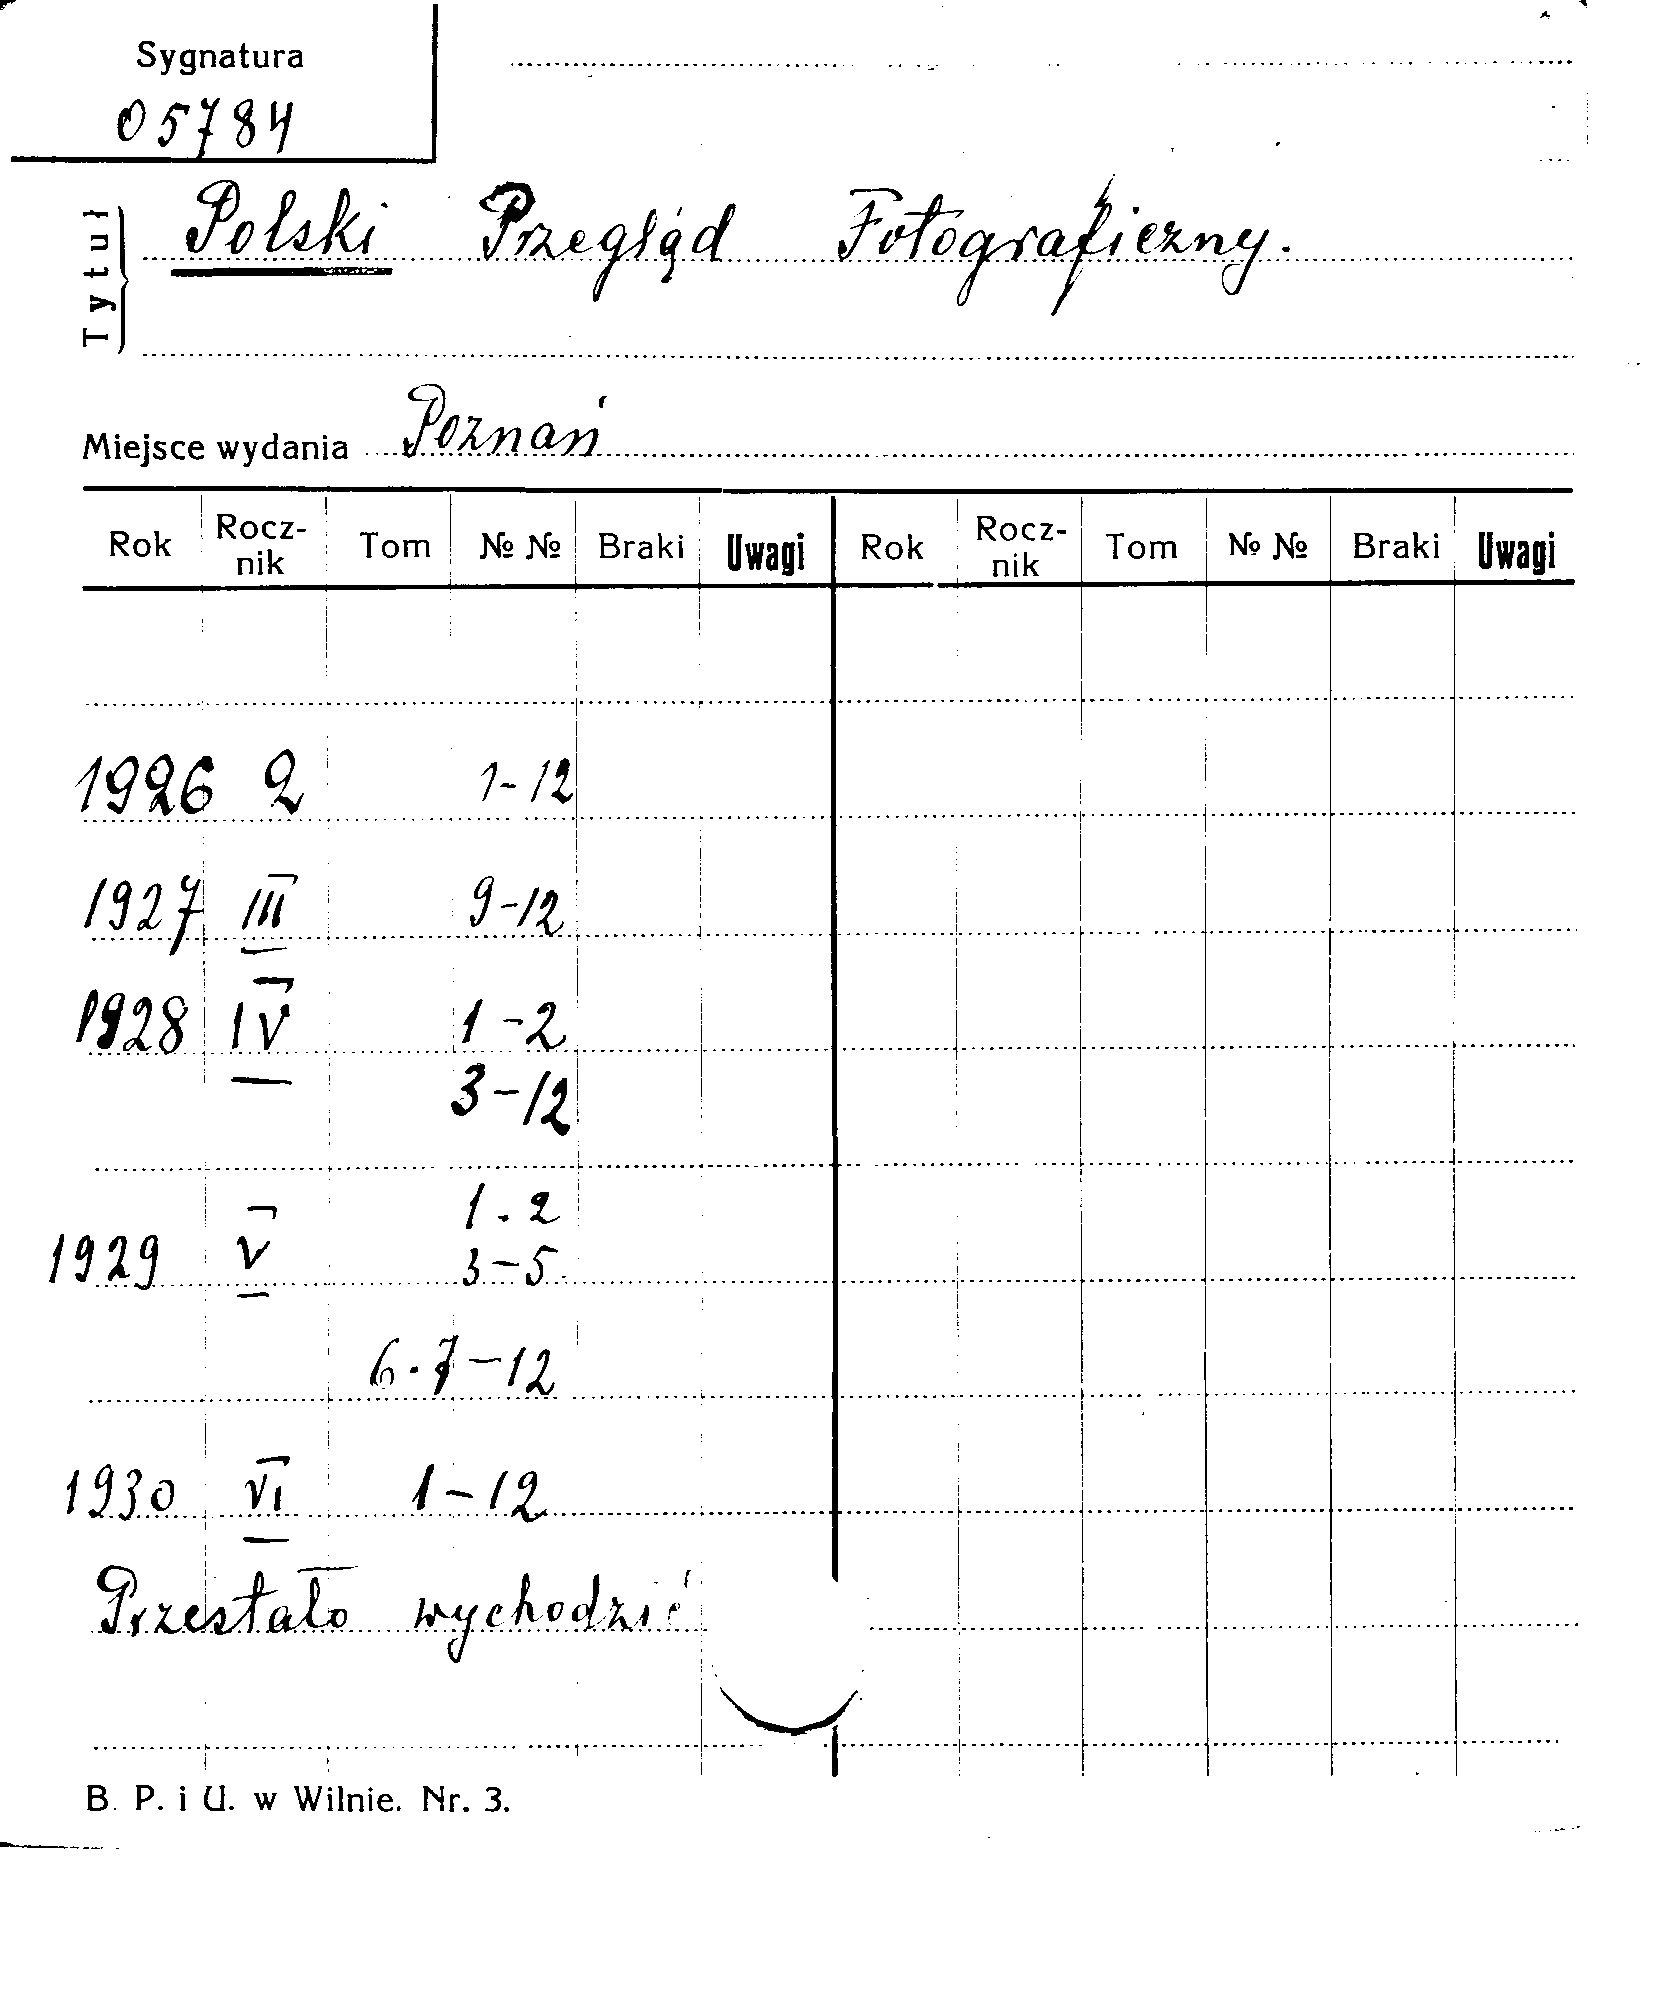 Sygnatura
05784
Tytuł
Polski Przegląd Fotograficzny.
Miejsce wydania Poznań
Rok Rocz-nik Tom №№ Braki Uwagi Rok Rocz-nik Tom №№ Braki Uwagi
1926 2 1-12
1927 III 9-12
1928 IV 1-2
3-12
1.2
1929 V 3-5
6.7-12
1930 VI 1-12
Przestało wychodzić
B. P. i U. w Wilnie. Nr. 3.